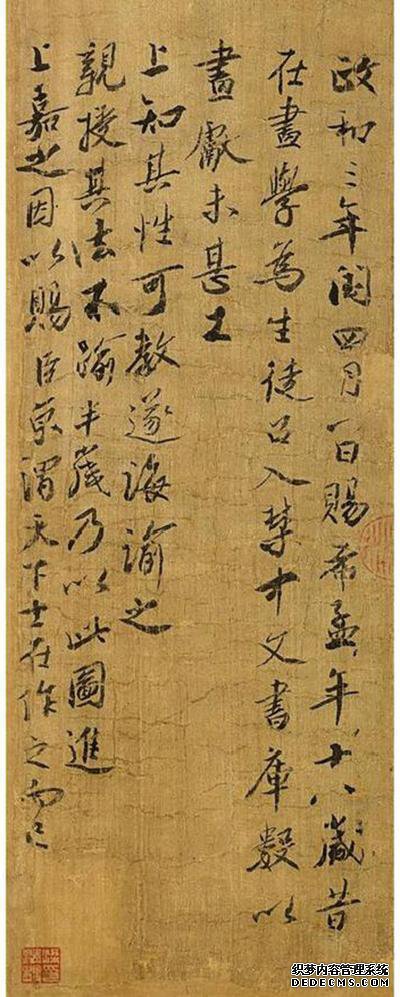 政和三年閏四月一日賜希孟年十八歲昔
在畫學為生徒召入禁中文書庫數以
畫獻未甚工
上知其性可教遂誨諭之
親授其法不踰半歲乃以此圖進
上嘉之因以賜臣京謂天下士在作之而已
织梦内容管理系统
DEDECMS.COM